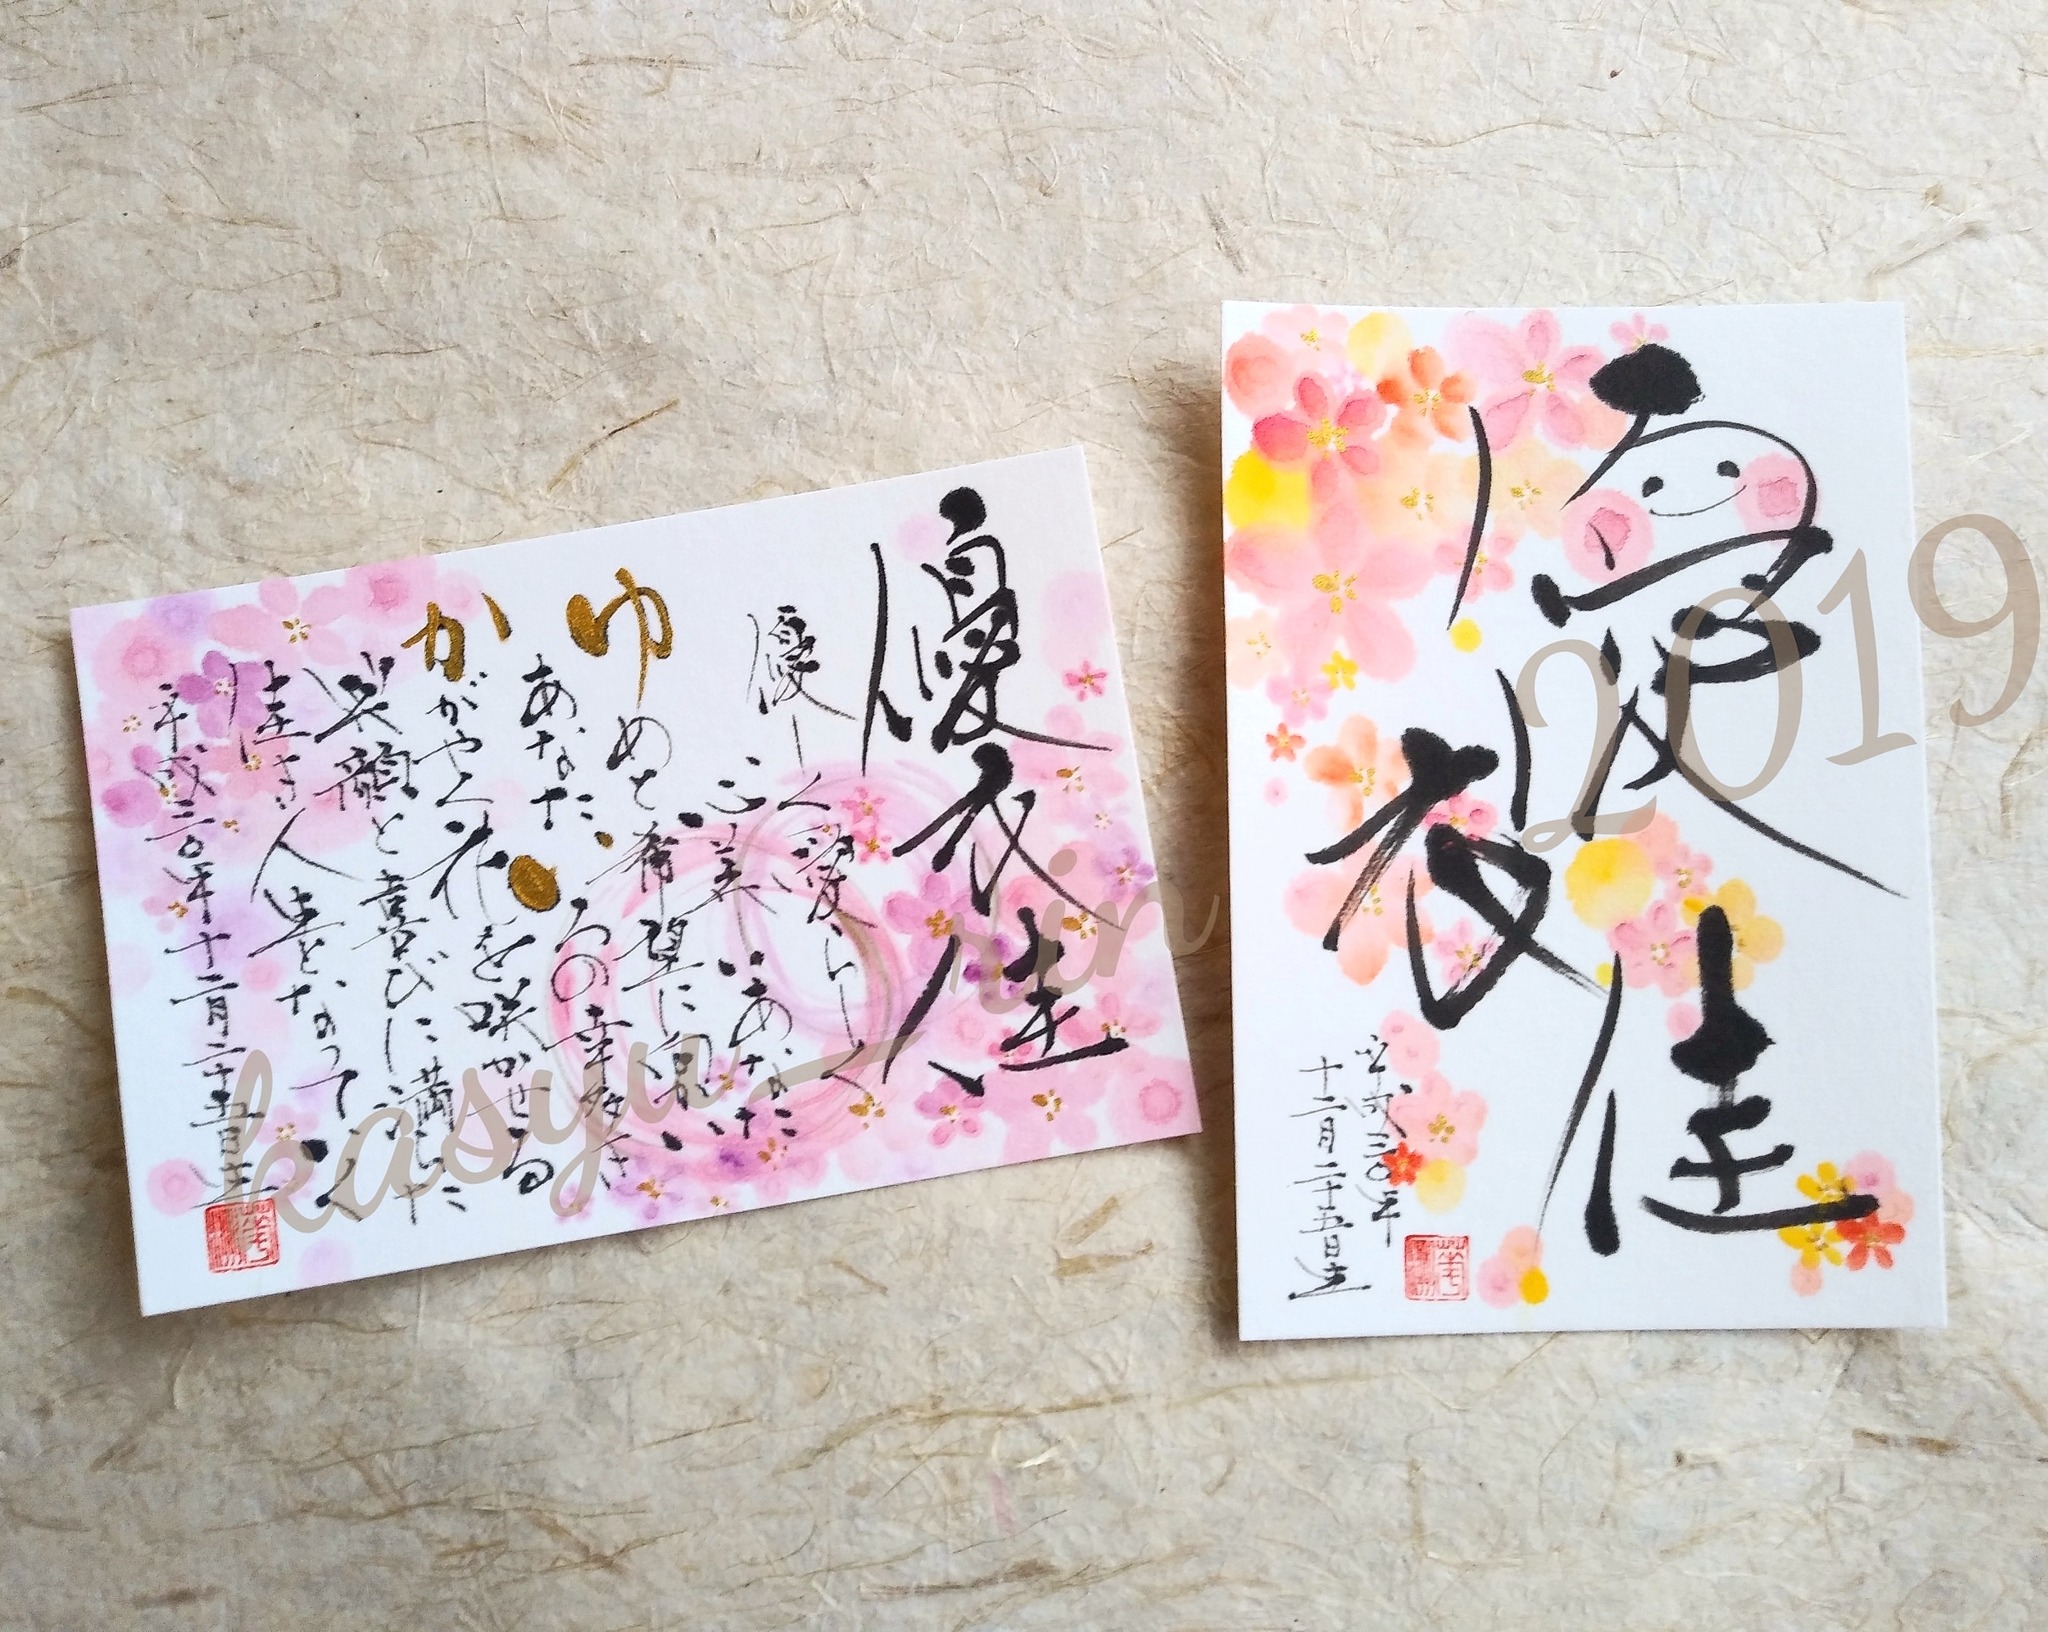 優衣佳
優しく愛らしく
心美しいあなた
ゆめと希望に向い
あなたいろの幸
かがやく花を咲かせる
笑顔と喜びに満ちた
佳き人生となっていく
平成三〇年十二月二十五日生
優衣佳
平成三〇年
十二月二十五日生
kasyu_rin 2019